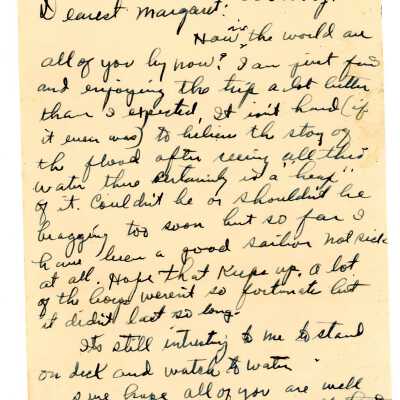 Dearest Margaret:
How in the world are
all of you by now? I am just fine
and enjoying the trip a lot better
than I expected. It isn't hard (if
it ever was) to believe the story of
the flood after seeing "all this
water there certainly is a heap"
of it. Couldn't be or shouldn't be
bragging too soon but so far I
have been a good sailor not sick
at all. Hope that keeps up. A lot
of the boys weren't so fortunate but
it didn't last so long.
It's still intresting to me to stand
on deck and watch to water
sure hope all of you are well